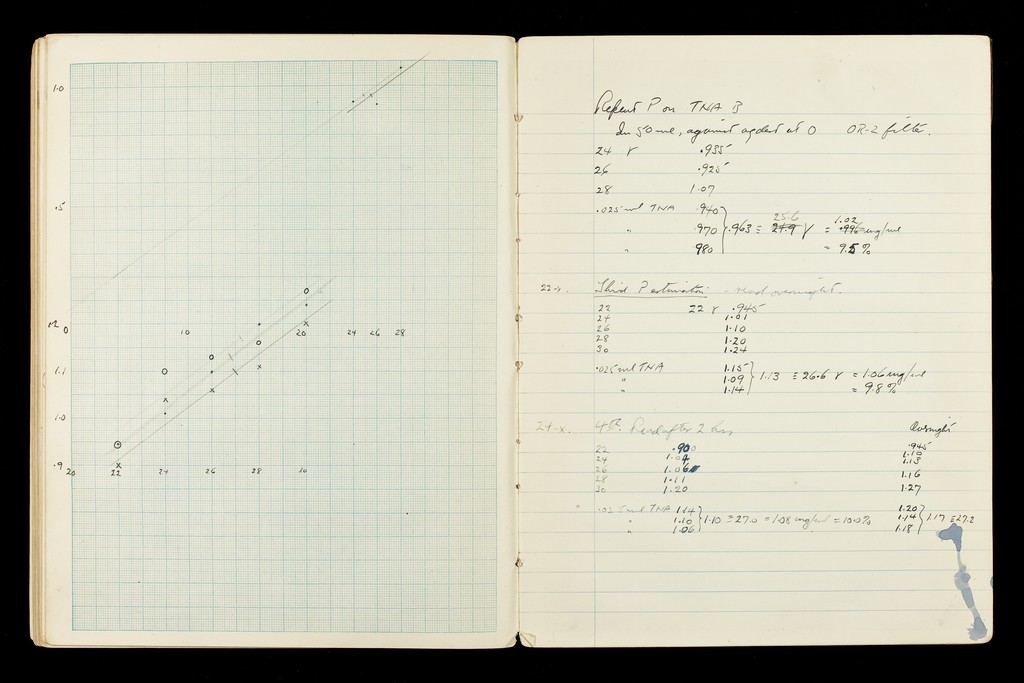 1.0
.5
1.2 0
10
20
24 26 28
1.1
1.0
.9
20 22 24 26 28 30
Repeat P on TNA B
In 50 ml, against at 0 OR-2 filter.
24 γ .935
26 .925
28 1.07
.025 ml TNA .940
" .970 } .963 ≡ 24.9 25.6 γ = .996 1.02 mg/ml
" 980 = 9.5 %
22-x. Third P estimation - read overnight.
22 22 γ .945
24 1.01
26 1.10
28 1.20
30 1.24
.025 ml TNA 1.15
" 1.09 } 1.13 ≡ 26.6 γ = 1.06 mg/ml
" 1.14 = 9.8 %
24-x. 4th. Read after 2 hrs Overnight
22 .900 .945
24 1.04 1.10
26 1.06 1.13
28 1.11 1.16
30 1.20 1.27
" .025 ml TNA 1.14 1.20
" 1.10 } 1.10 ≡ 27.0 = 1.08 mg/ml = 10.0% 1.14 } 1.17 ≡ 27.2
" 1.06 1.18